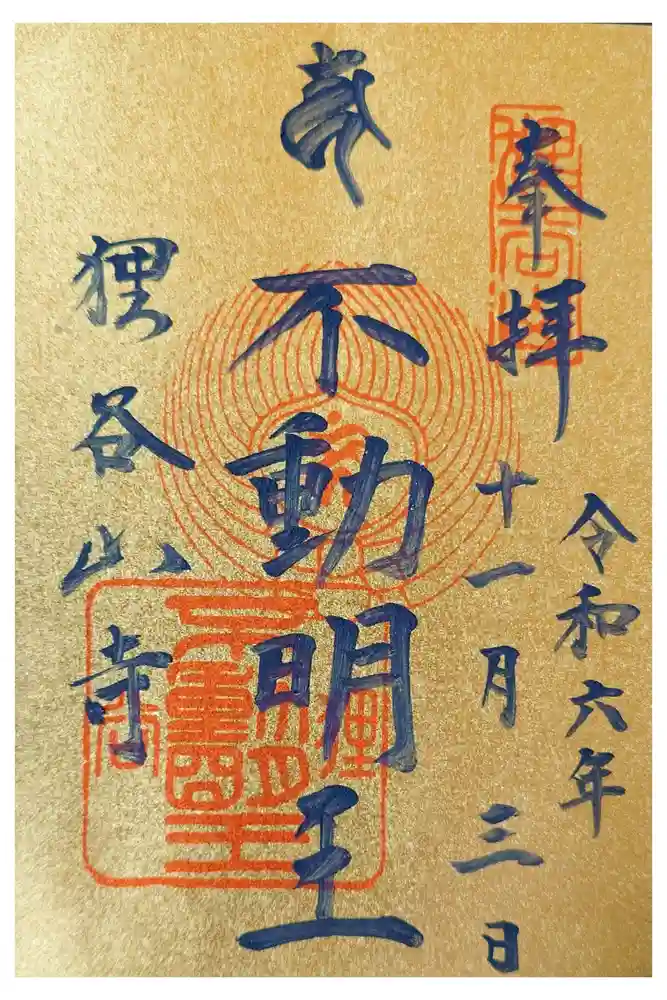 奉拝
令和六年
十一月三日
不動明王
狸谷山寺